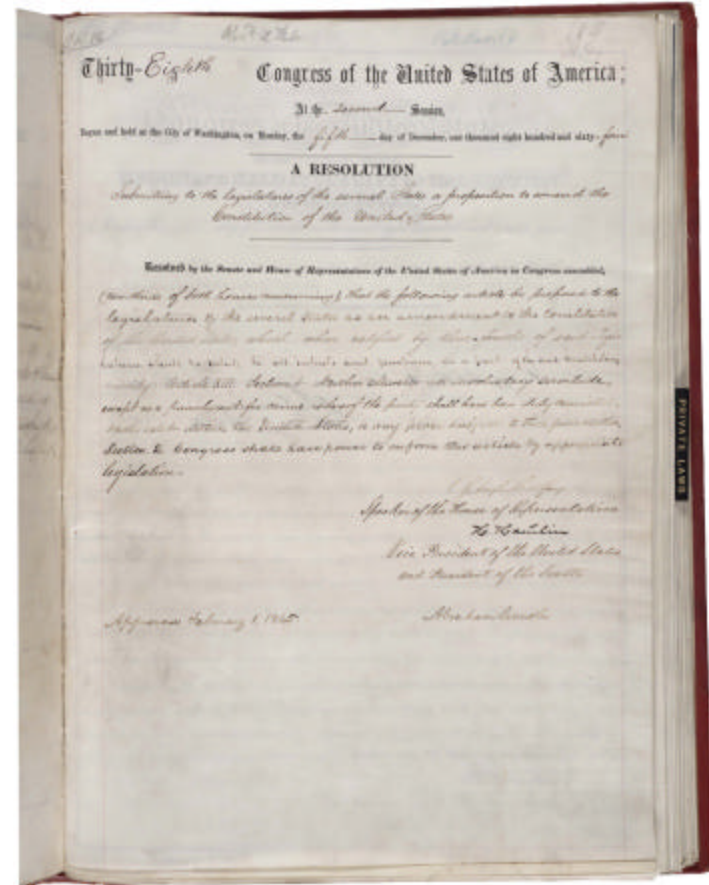 Thirty-Eighth Congress of the United States of America;
At the second Session,
Begun and held at the City of Washington, on Monday, the fifth day of December, one thousand eight hundred and sixty-four
A RESOLUTION
Submitting to the legislatures of the several States a proposition to amend the
Constitution of the United States
Resolved by the Senate and House of Representatives of the United States of America in Congress assembled,
(two-thirds of both houses concurring), that the following article be proposed to the
legislatures of the several States as an amendment to the Constitution
of the United States, which, when ratified by three-fourths of said
to all intents and purposes, as a part of the said Constitution
namely: Article XIII. Section 1. Neither slavery nor involuntary servitude,
except as a punishment for crime whereof the party shall have been duly
within the United States, or any place subject to their jurisdiction
Section 2. Congress shall have power to enforce this article by appropriate
legislation.
Speaker of the House of Representatives
H. Hamlin
Vice President of the United States
and President of the Senate
Approved February 1, 1865
Abraham Lincoln
PRIVATE LAWS